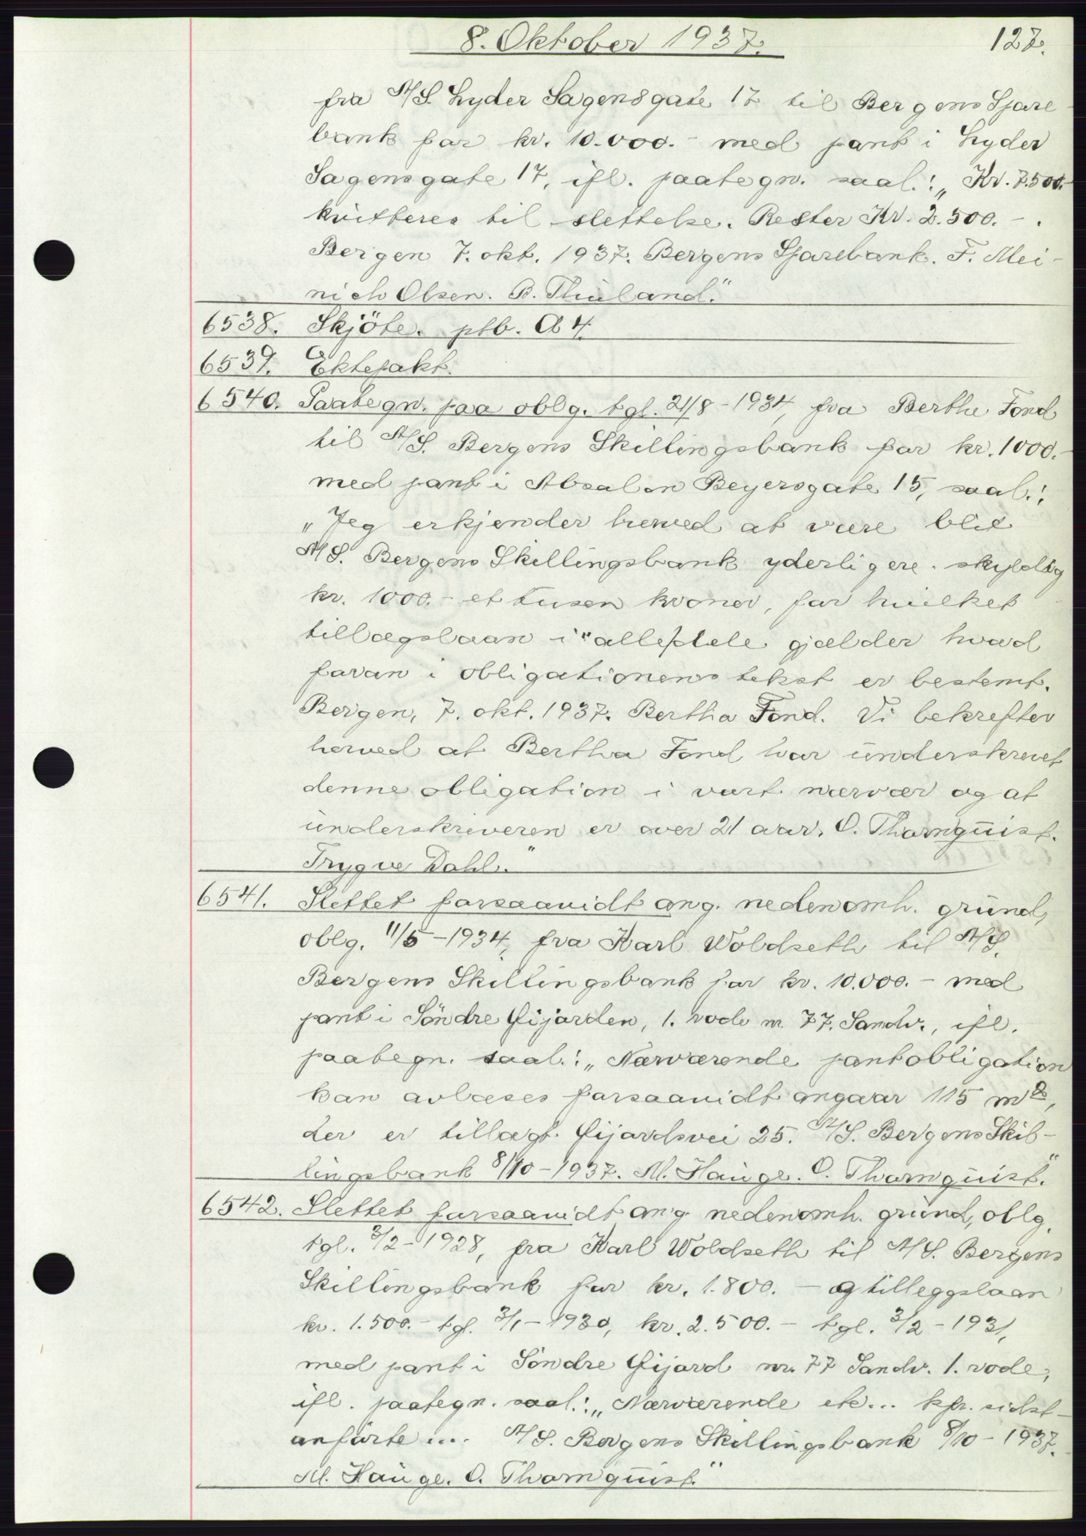 8. Oktober 1937. 127.
fra A/S. Lyder Sagensgate 17 til Bergens Spare-
bank for kr. 10.000.- med pant i Lyder
Sagensgate 17, ifl. paategn. saal.: „Kr. 7.500.-
kvitteres til slettelse. Rester Kr. 2.500.-.
Bergen 7. okt. 1937. Bergens Sparebank. F. Mei-
nich Olsen. B. Thuland."
6538. Skjöte. ptb. A 4.
6539. Ektepakt.
6540. Paategn. paa oblg. tgl. 21/8-1934, fra Berthe Fond
til A/S. Bergens Skillingsbank for kr. 1000.-
med pant i Absalon Beyersgate 15, saal.:
„Jeg erkjender herved at være blit
A/S. Bergens Skillingsbank yderligere skyldig
kr. 1000.- et tusen kroner, for hvilket
tillægslaan i alle dele gjælder hvad
foran i obligationens tekst er bestemt.
Bergen, 7. okt. 1937. Bertha Fond. Vi bekrefter
herved at Bertha Fond har underskrevet
denne obligation i vort nærvær og at
underskriveren er over 21 aar. O. Thornquist.
Trygve Dahl."
6541. Slettet forsaavidt ang. nedenomh. grund,
oblg. 11/5-1934, fra Karl Woldseth til A/S.
Bergens Skillingsbank for kr. 10.000.- med
pant i Söndre Fijarden, 1. rode nr 77. Sandv., ifl.
paategn. saal.: „Nærværende pantobligation
kan avlæses forsaavidt angaar 115 m²,
der er tillagt Fijardsvei 25. A/S. Bergens Skil-
lingsbank 8/10-1937. M. Hauge. O. Thornquist."
6542. Slettet forsaavidt ang nedenomh. grund, oblg.
tgl. 3/2-1928, fra Karl Woldseth til A/S. Bergens
Skillingsbank for kr. 1.800.- og tilleggslaan
kr. 1.500.- tgl. 3/1-1930, kr. 2.500.- tgl. 3/2-1931,
med pant i Söndre Fijard nr. 77 Sandv. 1. rode,
ifl. paategn. saal.: „Nærværende etc... kfr. sidst-
anförte .... A/S. Bergens Skillingsbank 8/10-1937.
M. Hauge. O. Thornquist."